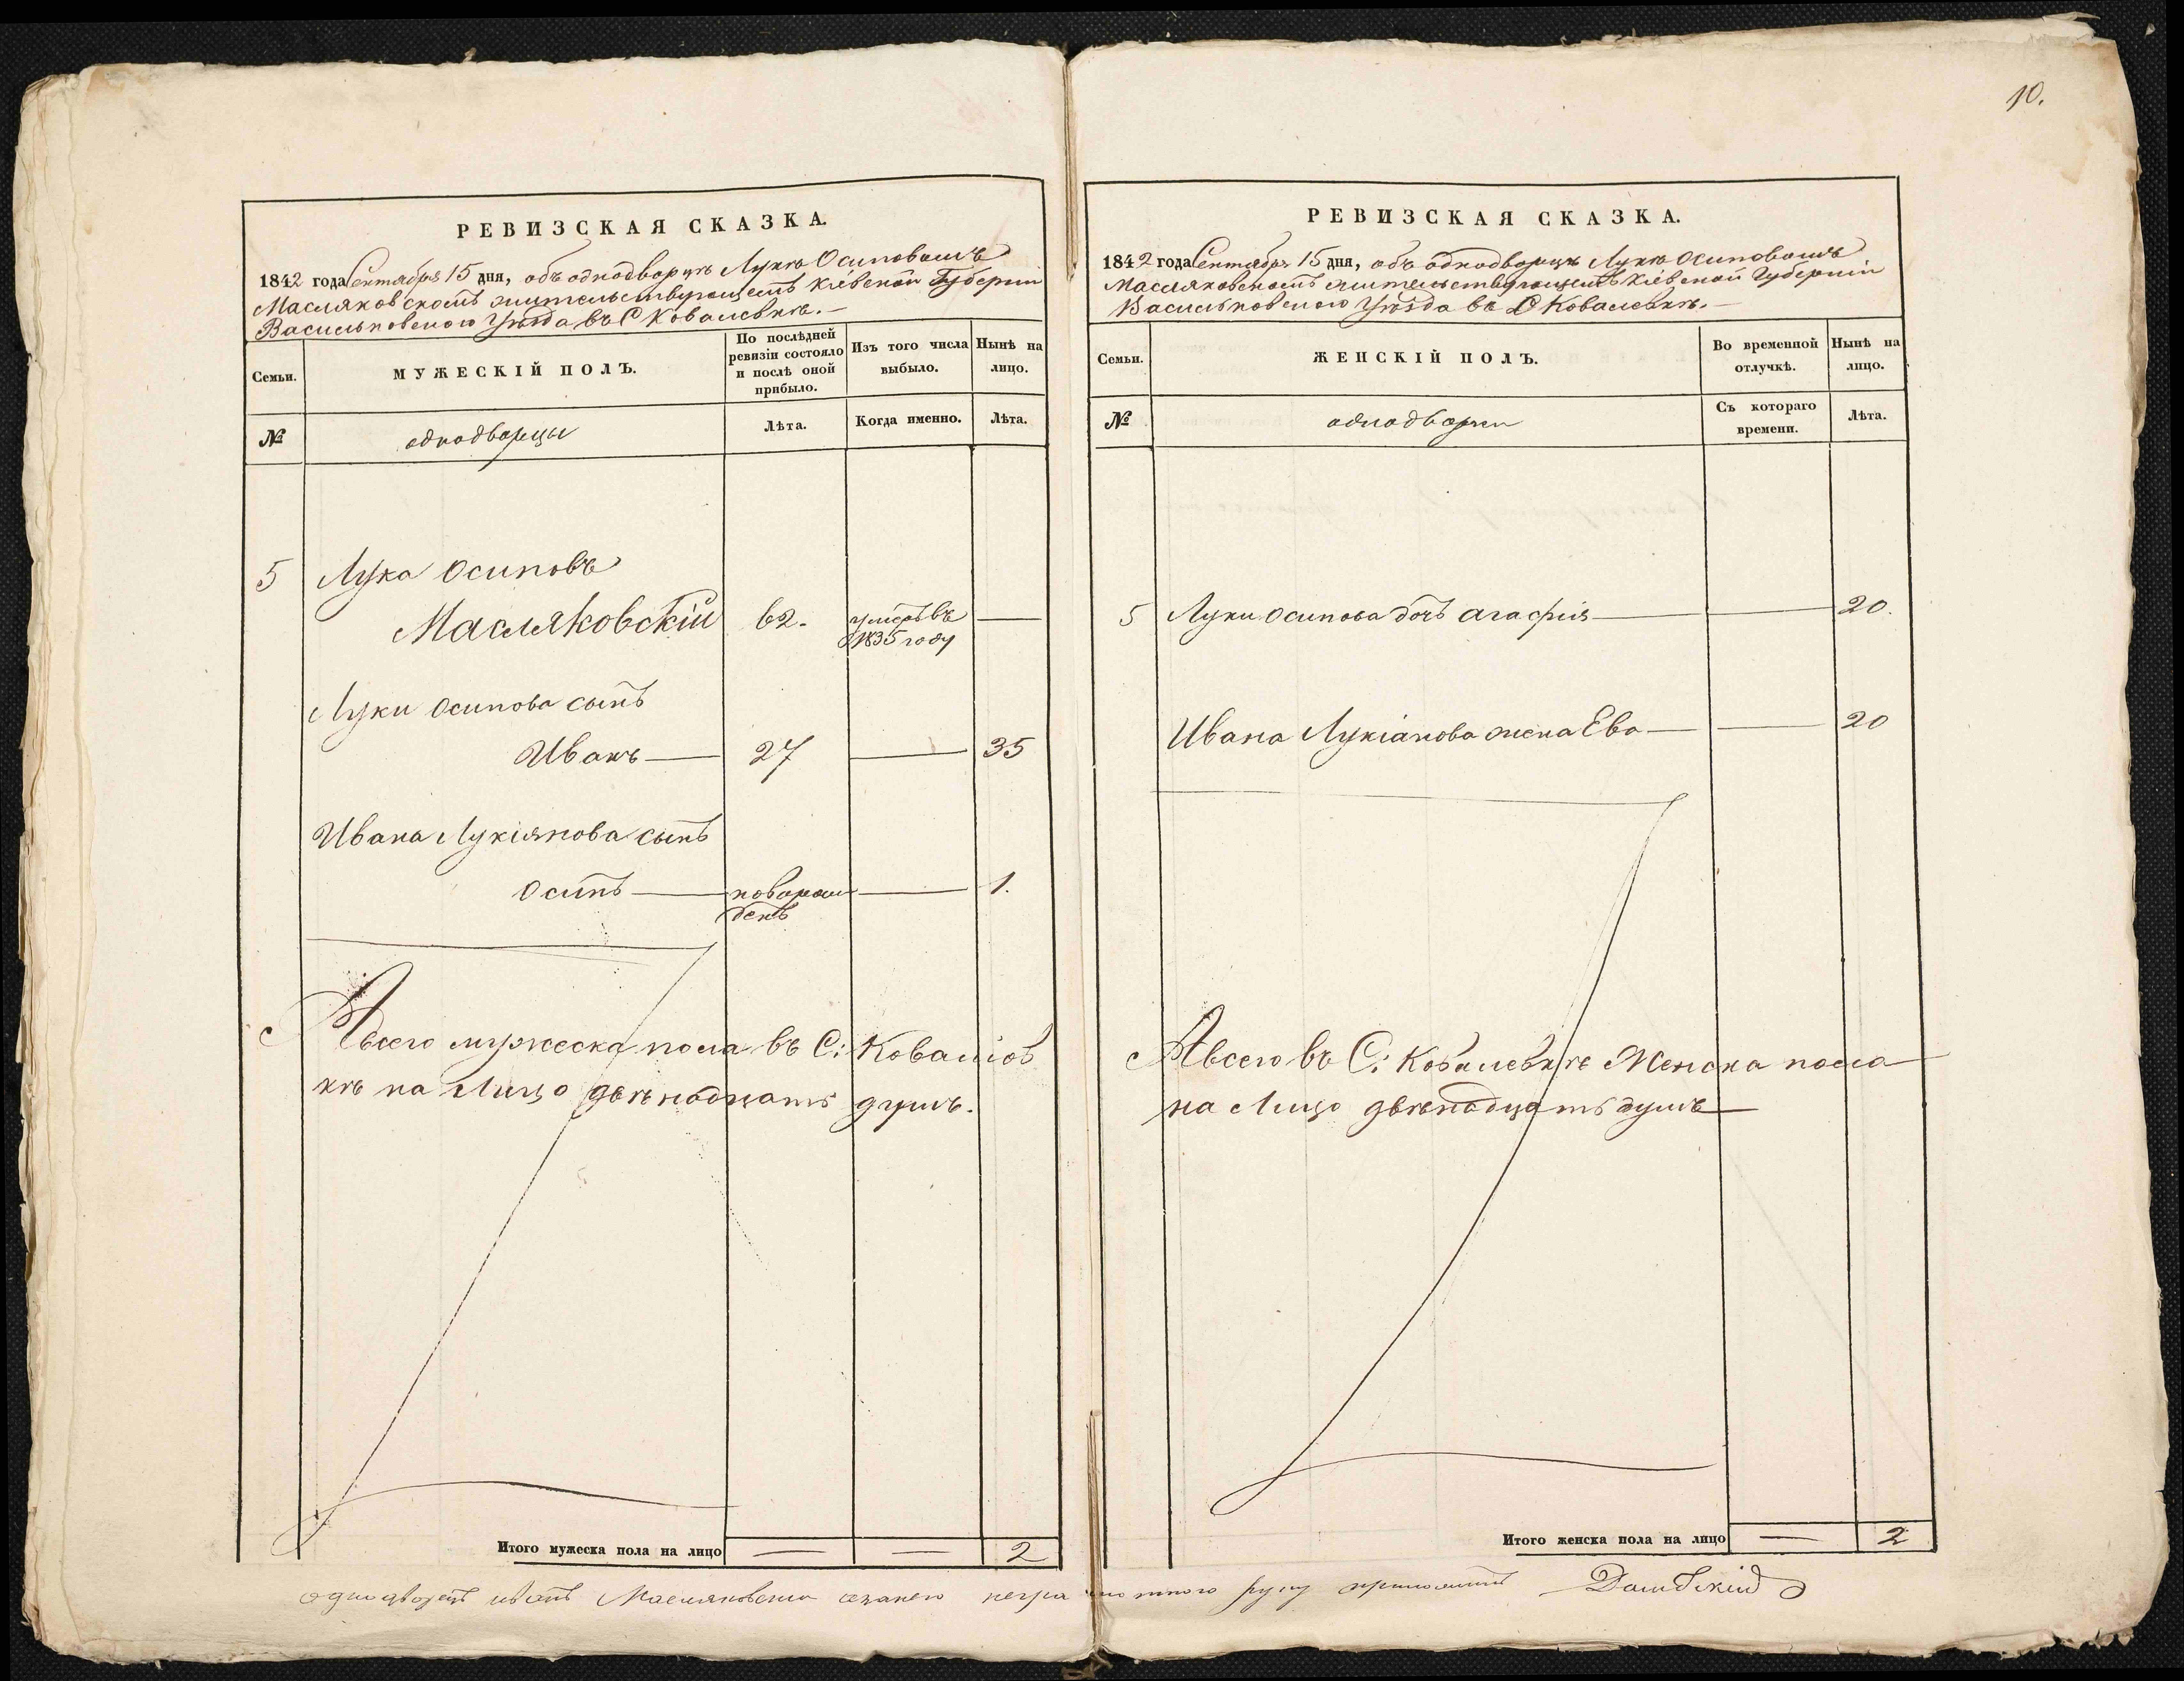 10.
РЕВИЗСКАЯ СКАЗКА.
1842 года Сентября 15 дня, объ однодворцѣ Лукѣ Осиповомъ
Масляковскомъ жительствующемъ Кіевской Губерніи
Васильковского Уѣзда въ С Ковалевкѣ.—
Семьи.
МУЖЕСКІЙ ПОЛЪ.
По послѣдней ревизіи состояло и послѣ оной прибыло.
Изъ того числа выбыло.
Нынѣ на лицо.
№
однодворцы
Лѣта.
Когда именно.
Лѣта.
5 Лука Осиповъ
Масляковскій 62. умеръ въ —
1835 году
Луки Осипова сынъ
Иванъ — 27 — 35
Ивана Лукіянова сынъ
Осипъ — новорож — 1.
денъ
А всего мужеска пола въ С: Коваліов
кѣ на Лицо двѣнадцать душъ.
Итого мужеска пола на лицо — — 2
РЕВИЗСКАЯ СКАЗКА.
1842 года Сентября 15 дня, объ однодворцѣ Лукѣ Осиповомъ
Масляковскомъ жительствующемъ Кіевской Губерніи
Васильковского Уѣзда въ С Ковалевкѣ.—
Семьи.
ЖЕНСКІЙ ПОЛЪ.
Во временной отлучкѣ.
Нынѣ на лицо.
№
однодворки
Съ котораго времени.
Лѣта.
5 Луки Осипова дочь Агафія — — 20.
Ивана Лукіанова жена Ева — — 20
А всего въ С: Ковалевкѣ Женска пола
на Лицо двѣнадцать душъ —
Итого женска пола на лицо — 2
однодворецъ иванъ Масляковски занего неграмотного руку приложилъ